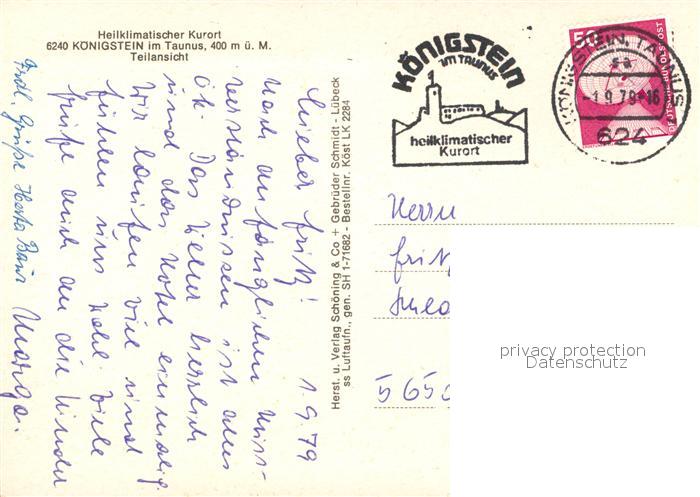 Heilklimatischer Kurort
6240 KÖNIGSTEIN im Taunus, 400 m ü. M.
Teilansicht
1.9.79
Lieber Fritz!
Nach anfänglichen Miss-
verständnissen ist alles
ok. Das Wetter herrlich
und das Hotel einmalig.
Wir laufen viel und
fühlen uns wohl. Viele
Grüße auch an die Kinder
Marga.
Frdl. Grüße Herta
Herst. u. Verlag Schöning & Co + Gebrüder Schmidt - Lübeck
ss Luftaufn., gen. SH 1-71682 - Bestellnr. Köst LK 2284
KÖNIGSTEIN
IM TAUNUS
heilklimatischer
Kurort
50
DEUTSCHE BUNDESPOST
KÖNIGSTEIN, TAUNUS
-1.9.79-16
624
Herrn
Fritz
565
privacy protection
Datenschutz